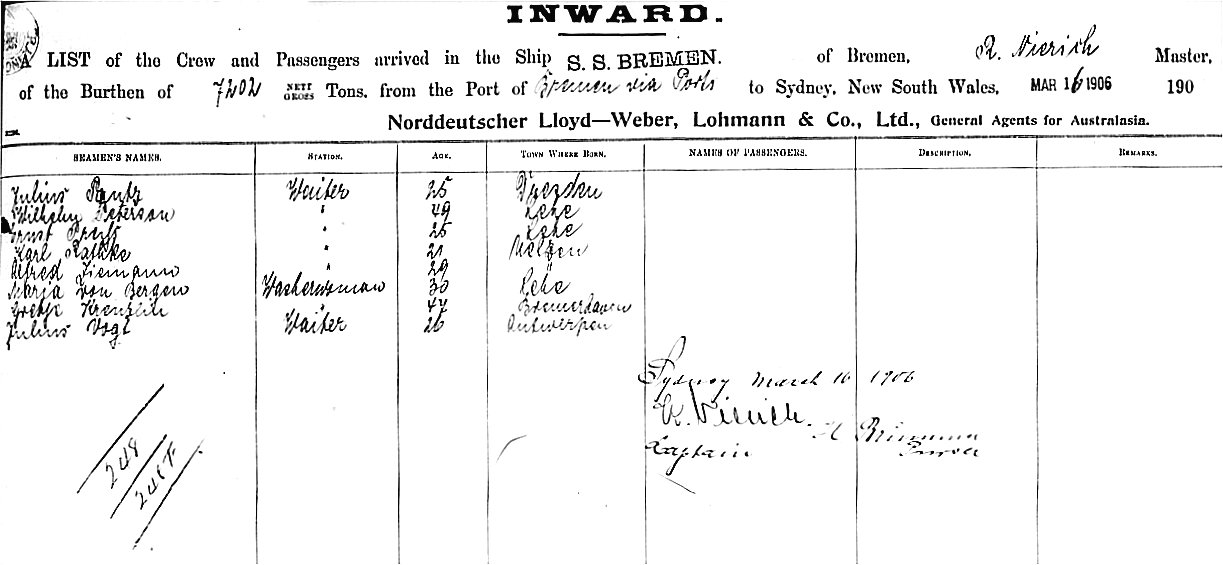 INWARD.
A LIST of the Crew and Passengers arrived in the Ship S. S. BREMEN. of Bremen, R. Nierich Master,
of the Burthen of 7202 NETT GROSS Tons, from the Port of Bremen via Ports to Sydney, New South Wales, MAR 16 1906 190
Norddeutscher Lloyd—Weber, Lohmann & Co., Ltd., General Agents for Australasia.
SEAMEN'S NAMES. STATION. AGE. TOWN WHERE BORN. NAMES OF PASSENGERS. DESCRIPTION. REMARKS.
Julius Waiter 25 Dresden
Wilhelm Peterson " 49 Lehe
Ernst Preuß " 25 Lehe
Karl Rathke " 21 Uelzen
Alfred Ziemann " 29 "
Marja von Bergen Washerwoman 30 Lehe
Gretje " 44 Bremerhaven
Julius Vogt Waiter 26 Antwerpen
Sydney March 16 1906
R. Nierich.
Captain Purser
248